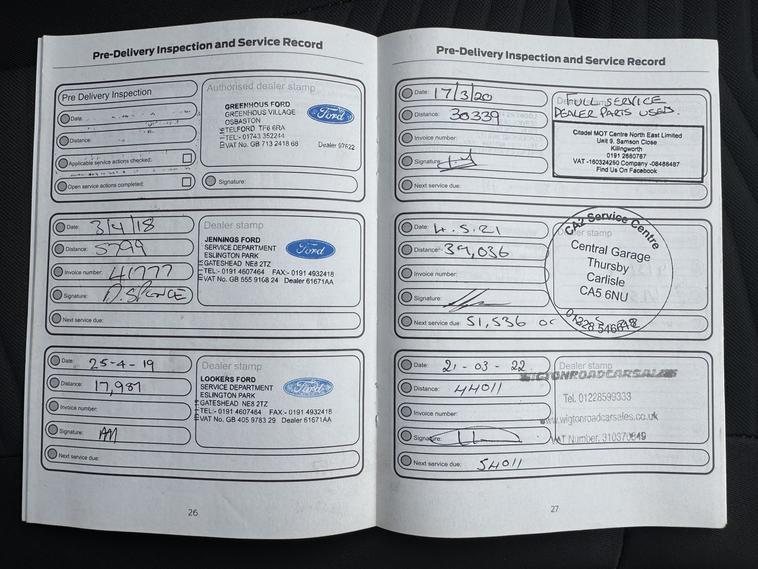 Pre-Delivery Inspection and Service Record
Pre Delivery Inspection
Date:
Distance:
Applicable service actions checked:
Open service actions completed:
Authorised dealer stamp
GREENHOUS FORD
GREENHOUS VILLAGE
OSBASTON
TELFORD TF6 6RA
TEL:- 01743 352244
VAT No. GB 713 2418 68 Dealer 97622
Ford
Signature:
Date: 3/4/18
Distance: 5799
Invoice number: 41777
Signature: D. SPENCE
Next service due:
Dealer stamp
JENNINGS FORD
SERVICE DEPARTMENT
ESLINGTON PARK
GATESHEAD NE8 2TZ
TEL:- 0191 4607464 FAX:- 0191 4932418
VAT No. GB 555 9168 24 Dealer 61671AA
Ford
Date: 25-4-19
Distance: 17,987
Invoice number:
Signature: AM
Next service due:
Dealer stamp
LOOKERS FORD
SERVICE DEPARTMENT
ESLINGTON PARK
GATESHEAD NE8 2TZ
TEL:- 0191 4607464 FAX:- 0191 4932418
VAT No. GB 405 9783 29 Dealer 61671AA
Ford
26
Pre-Delivery Inspection and Service Record
Date: 17/3/20
Distance: 30339
Invoice number:
Signature:
Next service due:
FULL SERVICE
DEALER PARTS USED.
Citadel MOT Centre North East Limited
Unit 9, Samson Close
Killingworth
0191 2680767
VAT -160324250 Company -08486487
Find Us On Facebook
Date: 4.5.21
Distance: 39,036
Invoice number:
Signature:
Next service due: 51,536 or
stamp
CA2 Service Centre
Central Garage
Thursby
Carlisle
CA5 6NU
Date: 21-03-22
Distance: 44011
Invoice number:
Signature:
Next service due: 54011
Dealer stamp
WIGTONROADCARSALES
Tel. 01228599333
www.wigtonroadcarsales.co.uk
VAT Number. 310370649
27